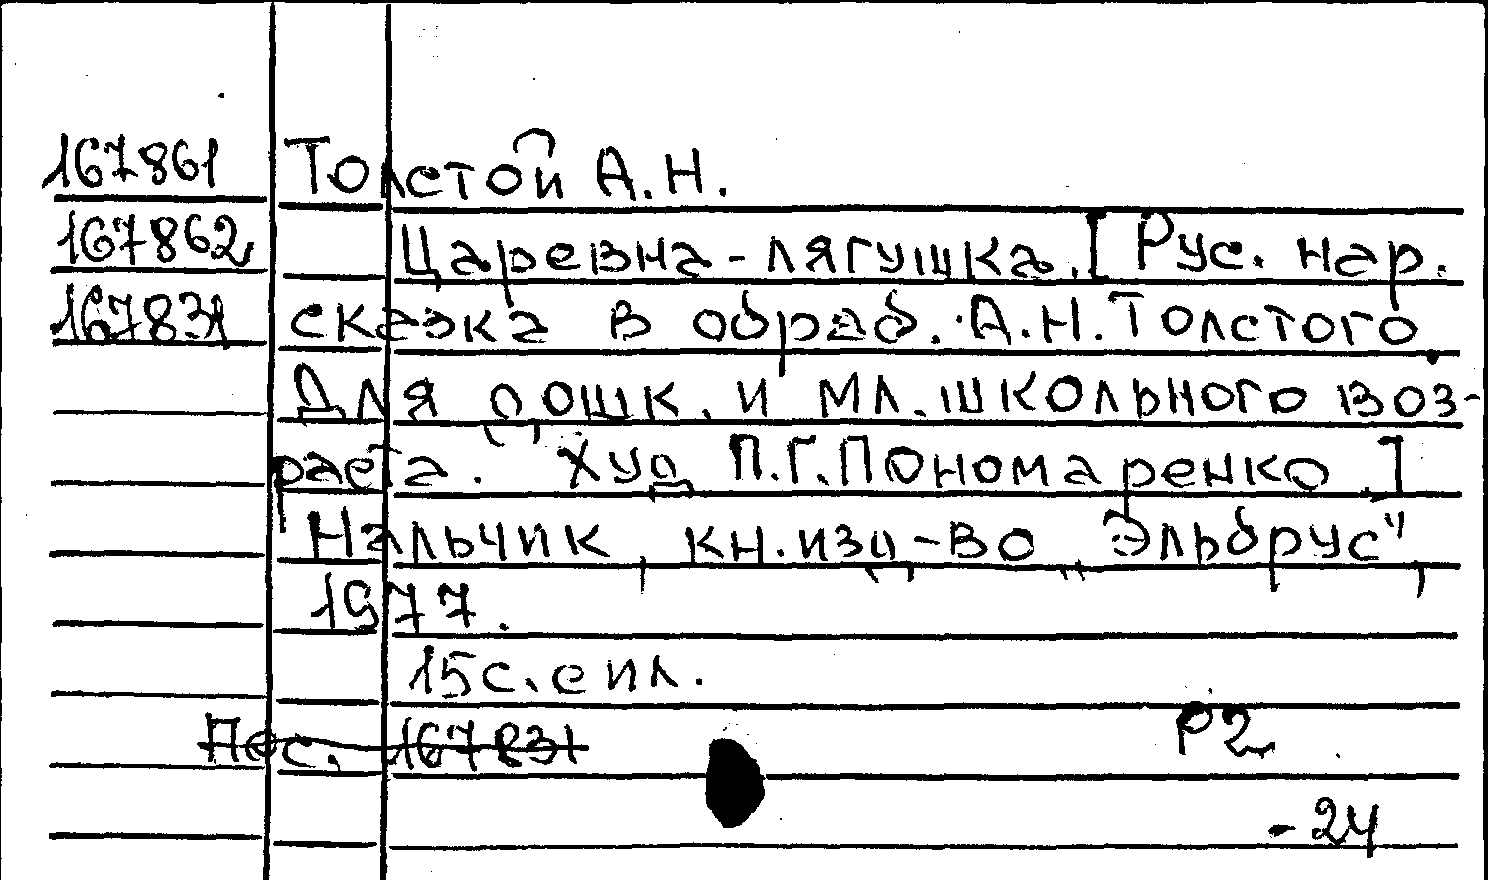 167861 Толстой А.Н.
167862 Царевна-лягушка. [Рус. нар.
167831 сказка в обраб. А.Н.Толстого.
Для дошк. и мл. школьного воз-
раста. Худ П.Г.Пономаренко.]
Нальчик, кн.изд-во „Эльбрус",
1977.
15с. с ил.
Пос. 167831 Р2
-24